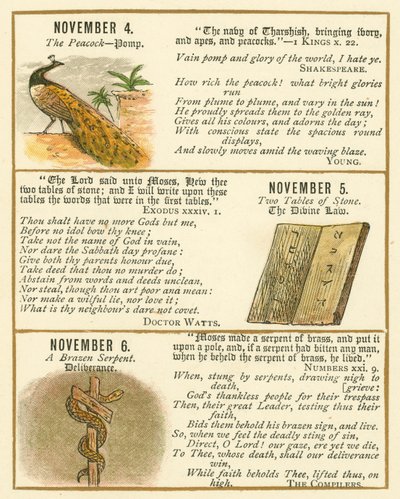 NOVEMBER 4.
The Peacock—Pomp.
"The navy of Tharshish, bringing ivory,
and apes, and peacocks."—1 KINGS x. 22.
Vain pomp and glory of the world, I hate ye.
SHAKESPEARE.
How rich the peacock! what bright glories
run
From plume to plume, and vary in the sun!
He proudly spreads them to the golden ray,
Gives all his colours, and adorns the day;
With conscious state the spacious round
displays,
And slowly moves amid the waving blaze.
YOUNG.
"The Lord said unto Moses, Hew thee
two tables of stone; and I will write upon these
tables the words that were in the first tables."
EXODUS xxxiv. 1.
Thou shalt have no more Gods but me,
Before no idol bow thy knee;
Take not the name of God in vain,
Nor dare the Sabbath day profane:
Give both thy parents honour due,
Take deed that thou no murder do;
Abstain from words and deeds unclean,
Nor steal, though thou art poor and mean:
Nor make a wilful lie, nor love it;
What is thy neighbour's dare not covet.
DOCTOR WATTS.
NOVEMBER 5.
Two Tables of Stone.
The Divine Law.
NOVEMBER 6.
A Brazen Serpent.
Deliverance.
"Moses made a serpent of brass, and put it
upon a pole, and, if a serpent had bitten any man,
when he beheld the serpent of brass, he lived."
NUMBERS xxi. 9.
When, stung by serpents, drawing nigh to
death, [grieve:
God's thankless people for their trespass
Then, their great Leader, testing thus their
faith,
Bids them behold his brazen sign, and live.
So, when we feel the deadly sting of sin,
Direct, O Lord! our gaze, ere yet we die,
To Thee, whose death, shall our deliverance
win,
While faith beholds Thee, lifted thus, on
high. THE COMPILERS.